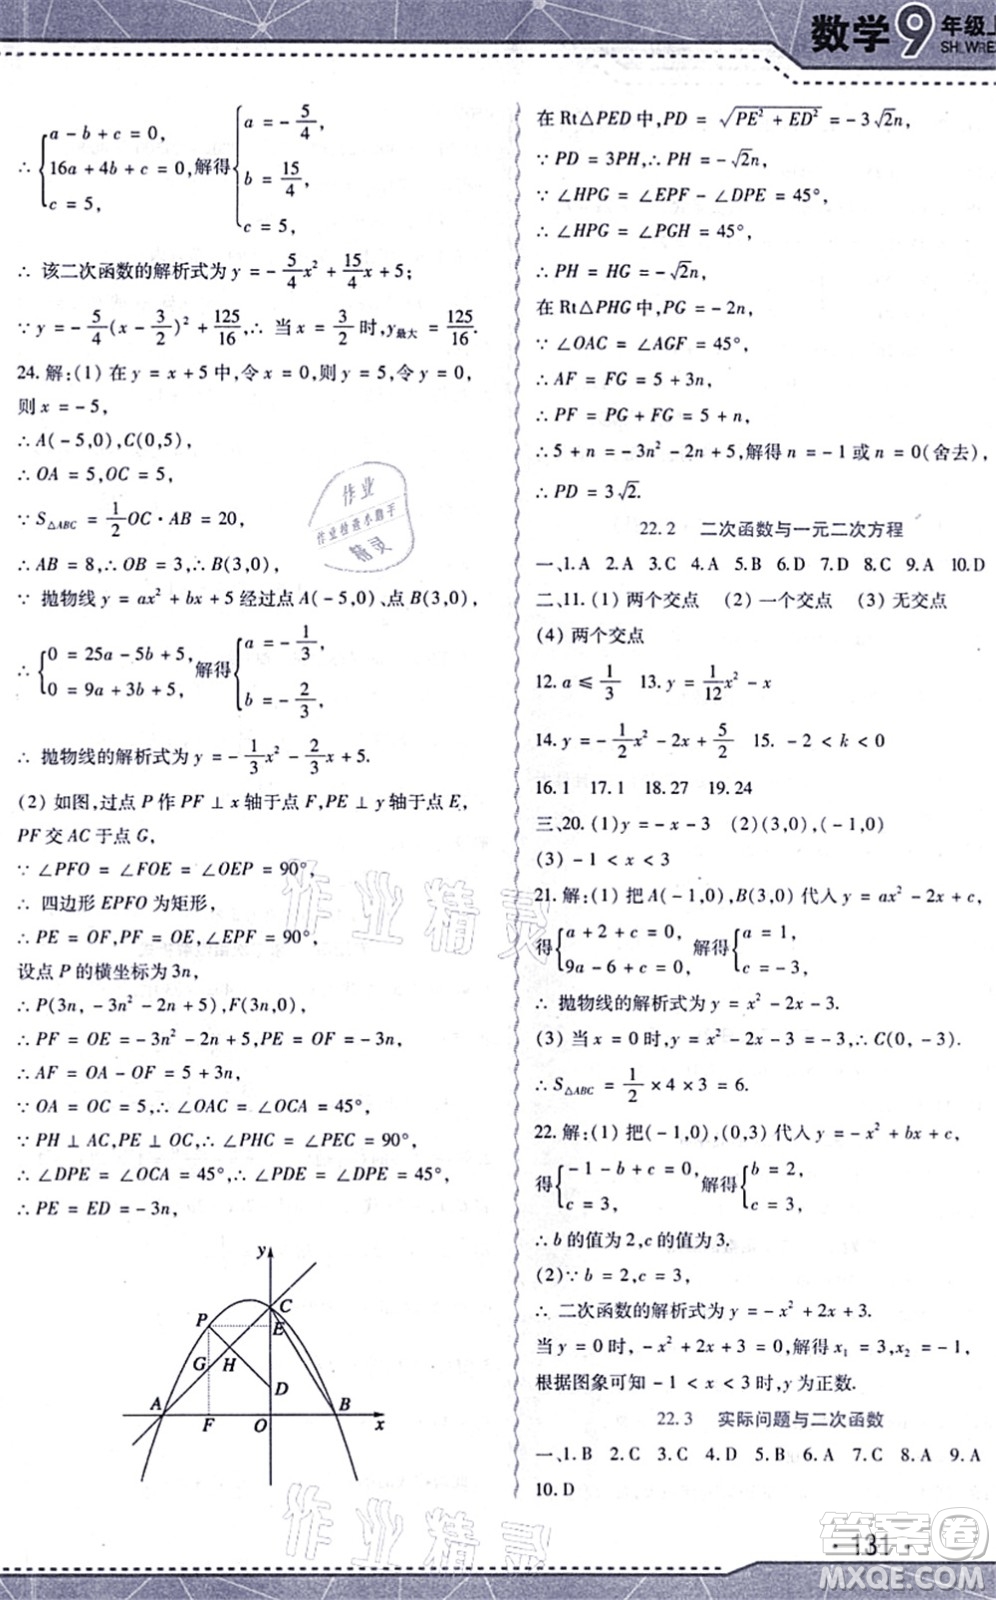 数学9年级上
SH WRE
∴ { a-b+c=0, 16a+4b+c=0, c=5, 解得 { a=-5/4, b=15/4, c=5,
∴ 该二次函数的解析式为 y=-5/4x²+15/4x+5;
∵ y=-5/4(x-3/2)²+125/16,∴ 当 x=3/2 时,y最大=125/16.
24. 解:(1) 在 y=x+5 中,令 x=0,则 y=5,令 y=0,
则 x=-5,
∴ A(-5,0),C(0,5),
∴ OA=5,OC=5,
∵ S△ABC=1/2OC·AB=20,
∴ AB=8,∴ OB=3,∴ B(3,0),
∵ 抛物线 y=ax²+bx+5 经过点 A(-5,0)、点 B(3,0),
∴ { 0=25a-5b+5, 0=9a+3b+5, 解得 { a=-1/3, b=-2/3,
∴ 抛物线的解析式为 y=-1/3x²-2/3x+5.
(2) 如图,过点 P 作 PF⊥x 轴于点 F,PE⊥y 轴于点 E,
PF 交 AC 于点 G,
∵ ∠PFO=∠FOE=∠OEP=90°,
∴ 四边形 EPFO 为矩形,
∴ PE=OF,PF=OE,∠EPF=90°,
设点 P 的横坐标为 3n,
∴ P(3n,-3n²-2n+5),F(3n,0),
∴ PF=OE=-3n²-2n+5,PE=OF=-3n,
∴ AF=OA-OF=5+3n,
∵ OA=OC=5,∴ ∠OAC=∠OCA=45°,
∵ PH⊥AC,PE⊥OC,∴ ∠PHC=∠PEC=90°,
∴ ∠DPE=∠OCA=45°,∴ ∠PDE=∠DPE=45°,
∴ PE=ED=-3n,
y
C
P
E
G
H
D
A
B
F
O
x
在 Rt△PED 中,PD=√(PE²+ED²)=-3√2n,
∵ PD=3PH,∴ PH=-√2n,
∵ ∠HPG=∠EPF-∠DPE=45°,
∴ ∠HPG=∠PGH=45°,
∴ PH=HG=-√2n,
在 Rt△PHG 中,PG=-2n,
∵ ∠OAC=∠AGF=45°,
∴ AF=FG=5+3n,
∴ PF=PG+FG=5+n,
∴ 5+n=-3n²-2n+5,解得 n=-1 或 n=0(舍去),
∴ PD=3√2.
22.2 二次函数与一元二次方程
一、1. A 2. A 3. C 4. A 5. B 6. D 7. D 8. C 9. A 10. D
二、11. (1) 两个交点 (2) 一个交点 (3) 无交点
(4) 两个交点
12. a≤1/3 13. y=1/12x²-x
14. y=-1/2x²-2x+5/2 15. -2<k<0
16. 1 17. 1 18. 27 19. 24
三、20. (1)y=-x-3 (2)(3,0),(-1,0)
(3) -1<x<3
21. 解:(1) 把 A(-1,0),B(3,0) 代人 y=ax²-2x+c,
得 { a+2+c=0, 9a-6+c=0, 解得 { a=1, c=-3,
∴ 抛物线的解析式为 y=x²-2x-3.
(3) 当 x=0 时,y=x²-2x-3=-3,∴ C(0,-3).
∴ S△ABC=1/2×4×3=6.
22. 解:(1) 把(-1,0),(0,3) 代人 y=-x²+bx+c,
得 { -1-b+c=0, c=3, 解得 { b=2, c=3,
∴ b 的值为 2,c 的值为 3.
(2)∵ b=2,c=3,
∴ 二次函数的解析式为 y=-x²+2x+3.
当 y=0 时,-x²+2x+3=0,解得 x₁=3,x₂=-1,
根据图象可知 -1<x<3 时,y 为正数.
22.3 实际问题与二次函数
一、1. B 2. C 3. C 4. D 5. C 6. B 7. A 8. A 9. A
10. D
·131·
作业
作业检查小助手
精灵
作业精灵
作业精灵
答案圈
MXQE.COM